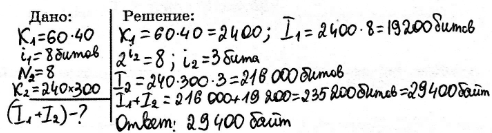 Дано:
K₁=60·40
i₁=8битов
N₂=8
K₂=240×300
(I₁+I₂)-?
Решение:
K₁=60·40=2400; I₁=2400·8=19200битов
2^i₂=8; i₂=3бита
I₂=240·300·3=216 000битов
I₁+I₂=216 000+19 200=235200битов=29400байт
Ответ: 29400 байт